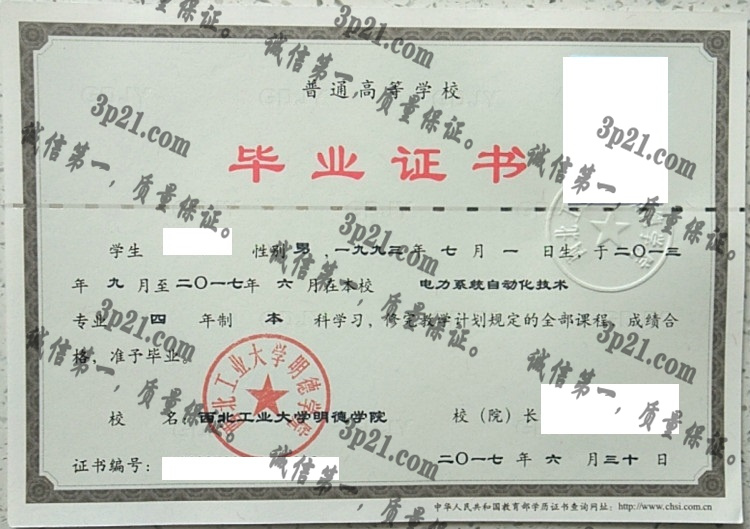 普通高等学校
毕业证书
学生 性别 男 ，一九九三 年 七 月 一 日生，于 二〇一三
年 九 月至 二〇一七 年 六 月在本校 电力系统自动化技术
专业 四 年制 本 科学习，修完教学计划规定的全部课程，成绩合
格，准予毕业。
校 名：西北工业大学明德学院 校（院）长
西北工业大学明德学院
证书编号： 二〇一七 年 六 月 三十 日
中华人民共和国教育部学历证书查询网址：http://www.chsi.com.cn
3p21.com
诚信第一，质量保证。
3p21.com
诚信第一，质量保证。
3p21.com
诚信第一，质量保证。
3p21.com
诚信第一，质量保证。
3p21.com
诚信第一，质量保证。
3p21.com
诚信第一，质量保证。
3p21.com
诚信第一，质量保证。